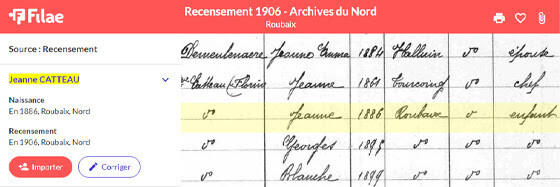 Filae
Recensement 1906 - Archives du Nord
Roubaix
Source : Recensement
Jeanne CATTEAU
Naissance
En 1886, Roubaix, Nord
Recensement
En 1906, Roubaix, Nord
Importer
Corriger
Demeulenaere Jeanne Emma 1884 Halluin vo épouse
Catteau Jeanne 1861 Tourcoing vo chef
vo Jeanne 1886 Roubaix v enfant
vo Georges 1895 vo vo vo
vo Blanche 1899 vo vo vo